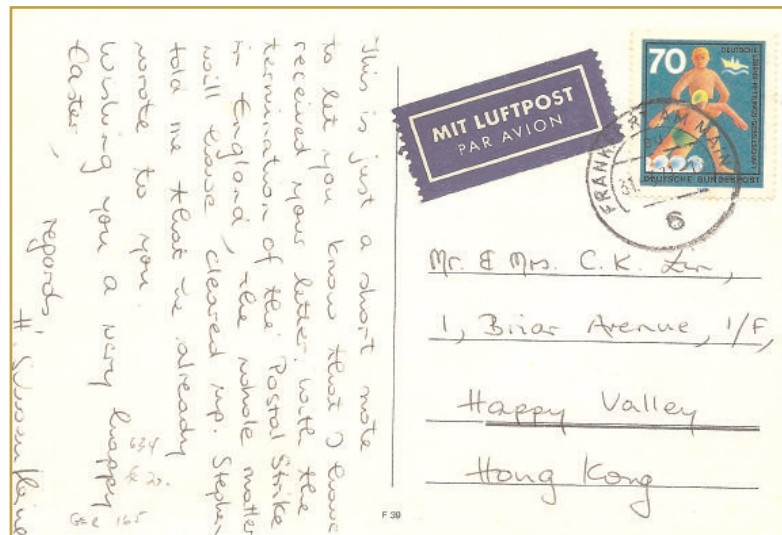 This is just a short note
to let you know that I have
received your letter. with the
termination of the Postal Strike
in England, the whole matter
will have cleared up. Stephen
told me that he already
wrote to you.
Wishing you a very happy
Easter,
regards,
H.
634
GER 165
MIT LUFTPOST
PAR AVION
70
DEUTSCHE
DEUTSCHE BUNDESPOST
AM MAIN
6
Mr. & Mrs. C. K. Lin,
1, Briar Avenue, 1/F,
Happy Valley
Hong Kong
F 39